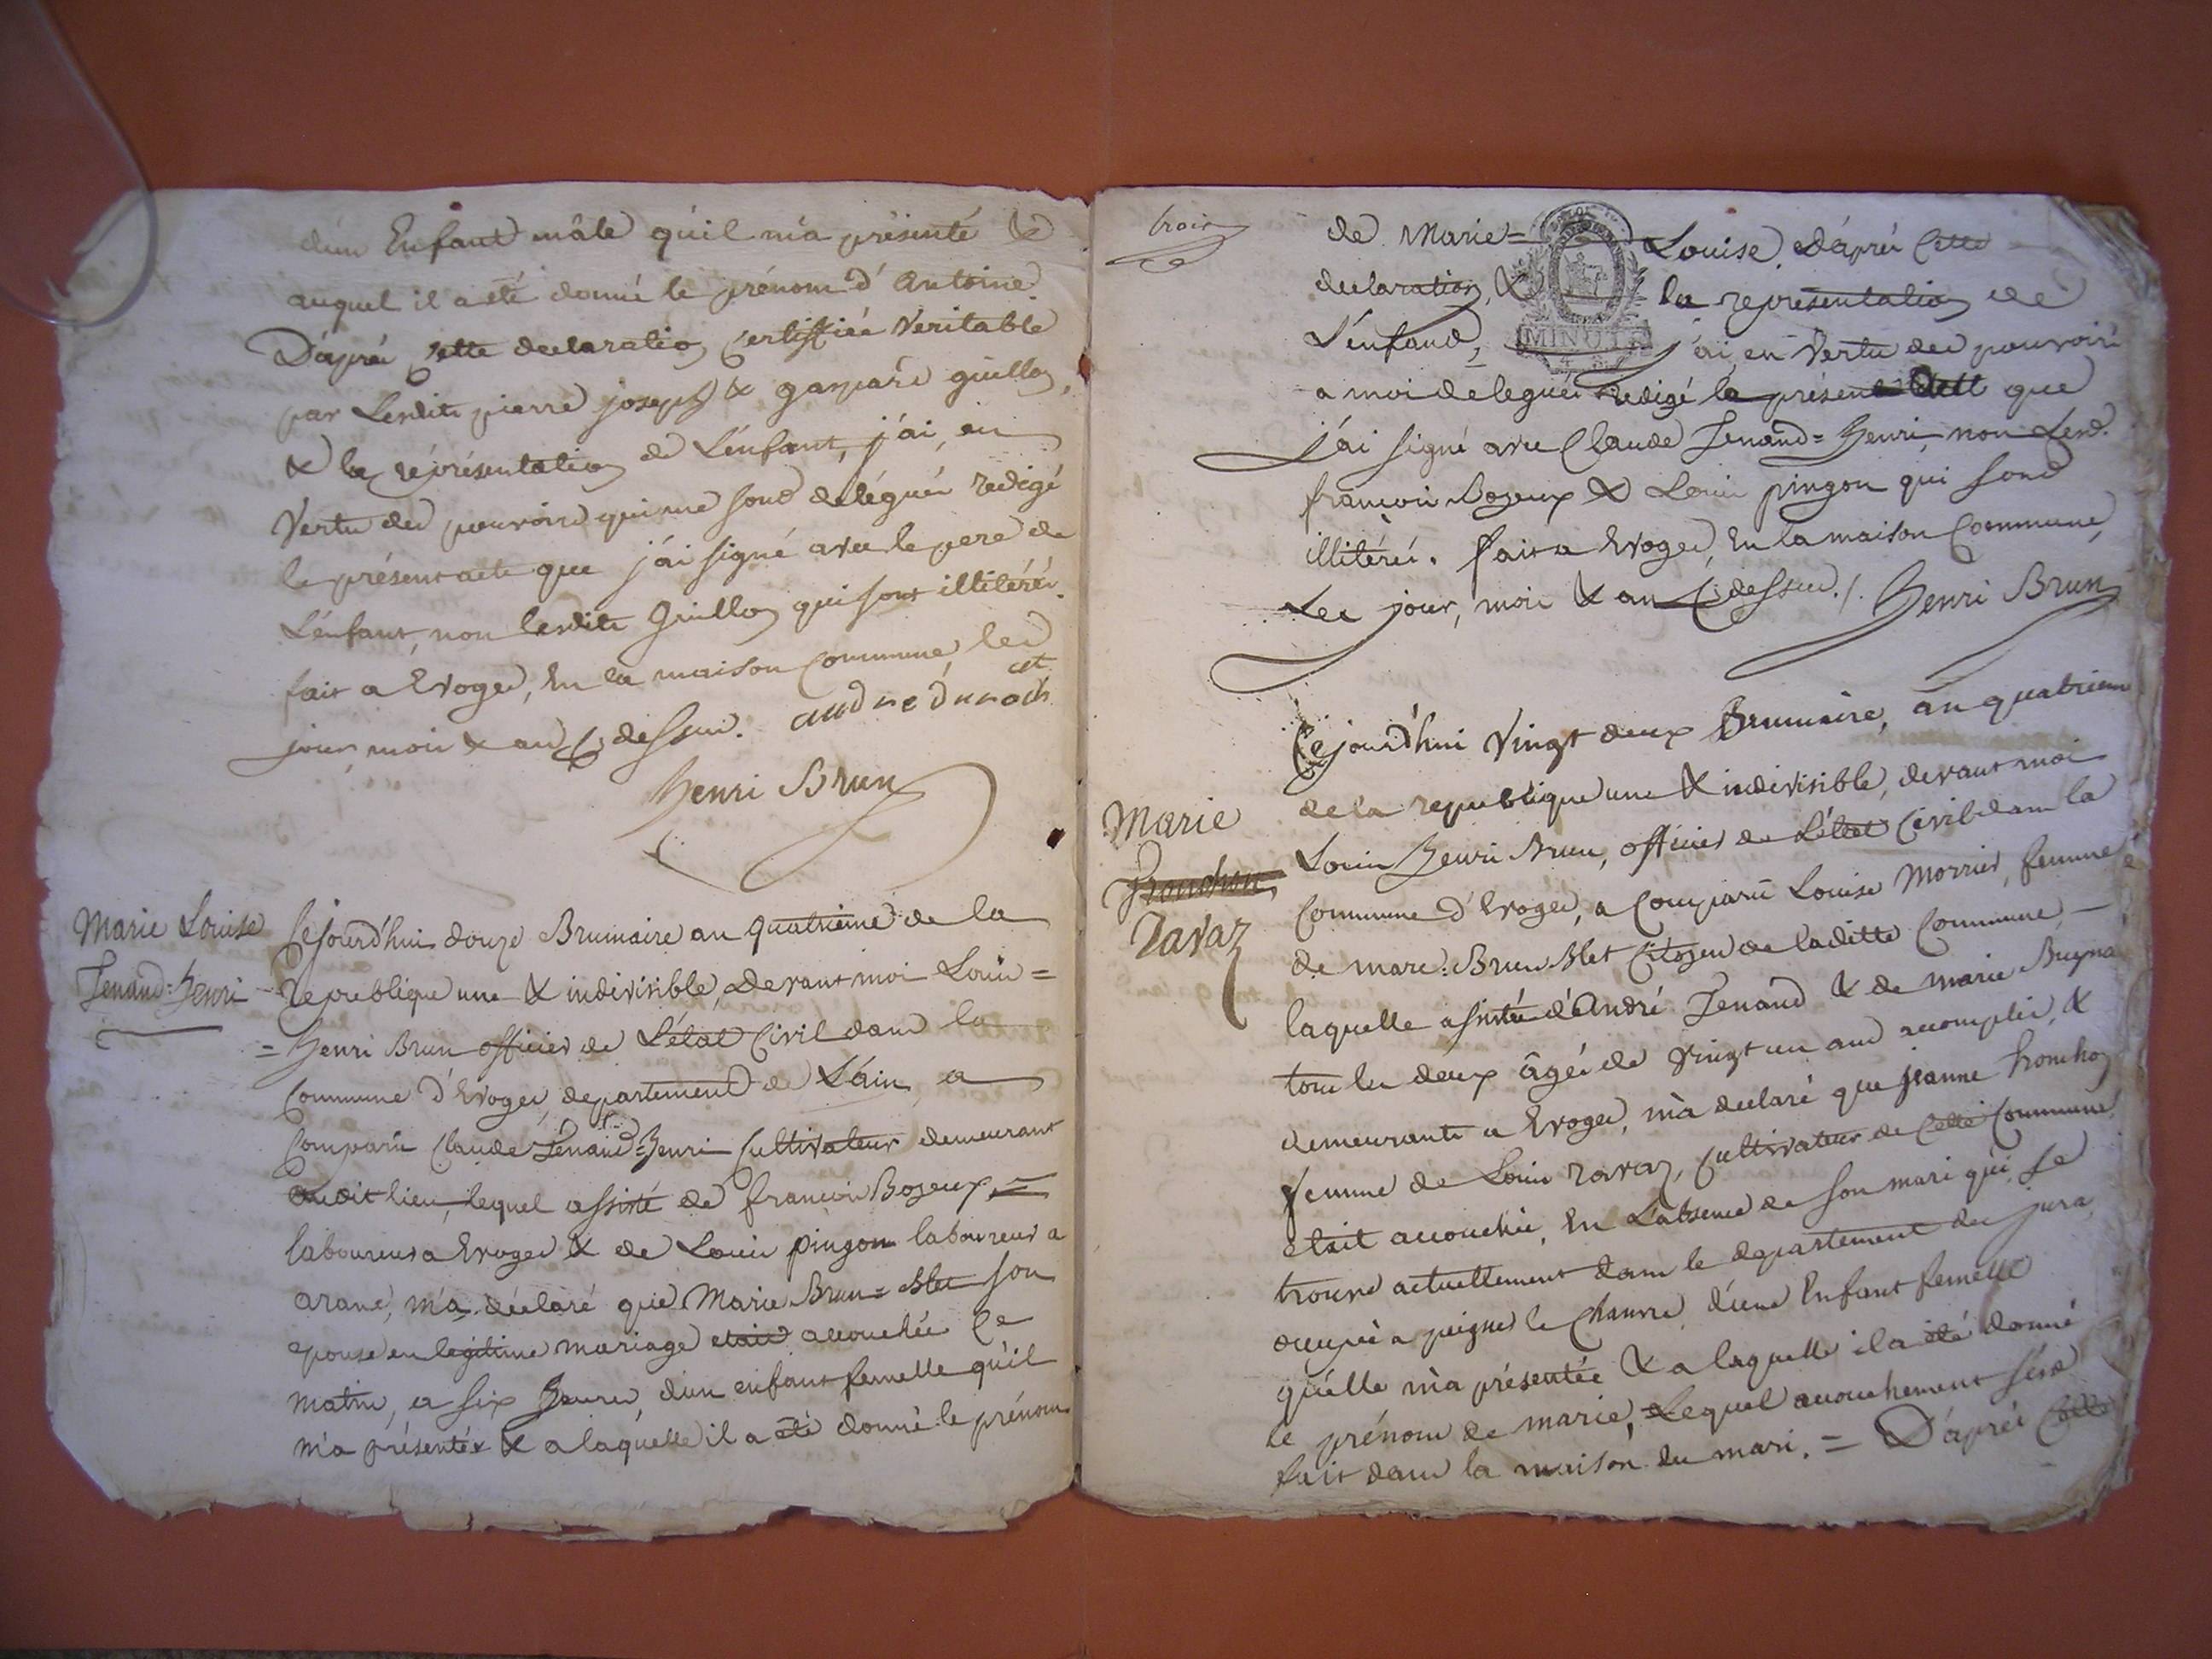 d'un Enfant mâle qu'il m'a présenté &
auquel il a été donné le prénom d'Antoine.
D'après cette declaration certiffiée Veritable
par Lesdits pierre joseph & gaspard guillon,
& la réprésentation de L'enfant, j'ai, en
Vertu des pouvoirs qui me sont délégués redigé
le présent acte que j'ai signé avec le pere de
L'enfant, non lesdits Guillon qui sont illitérés.
fait a Evoges, En la maison Commune, les
jour, mois & an Ci dessus.
Henri Brun
Marie Louise
Tenand=Henri
Cejourd'hui douze Brumaire an quatrieme de la
Republique une & indivisible, devant moi Louis=
=Henri Brun officier de L'état Civil dans la
Commune d'Evoges, departement de L'ain, a
Comparû Claude Tenand=Henri Cultivateur demeurant
audit lieu, lequel assisté de françois Bozeux,=
laboureur a Evoges & de Louis pingon laboureur a
arane, m'a déclaré que Marie Brun=Blet son
epouse en legitime mariage etait accouchée Ce
matin, a six heures, d'un enfant femelle qu'il
m'a présentée & a laquelle il a été donné le prénom
trois
de Marie=Louise. d'après Cette
declaration, & la représentation de
L'enfand, j'ai en Vertu des pouvoirs
MINUTE
a moi delegués redigé le présent acte que
j'ai signé avec Claude Tenand=Henri non Lesd.
françois Bozeux & Louis pingon qui sont
illitérés. fait a Evoges, En la maison Commune,
Les jour, mois & an Ci dessus./. Henri Brun
Marie
Ravaz
Cejourd'hui Vingt deux Brumaire, an quatrieme
de la republique une & indivisible, devant moi
Louis Henri Brun, officier de L'état Civil dans la
Commune d'Evoges, a Comparû Louise Morrier, femme
de marc. Brun Blet Citoyen de ladite Commune —
laquelle assistée d'André Tenand & de marie
tous les deux âgés de Vingt un ans accomplis, &
demeurants a Evoges, m'a declaré que jeanne
femme de Louis ravaz, Cultivateur de Cette Commune,
etait accouchée, En L'absence de son mari qui se
trouve actuellement dans le departement du jura,
occupé a peigner le Chanvre, d'une Enfant femelle
qu'elle m'a présentée & a laquelle il a été donné
le prénom de marie, Lequel accouchement s'est
fait dans la maison du mari. = D'après Cette